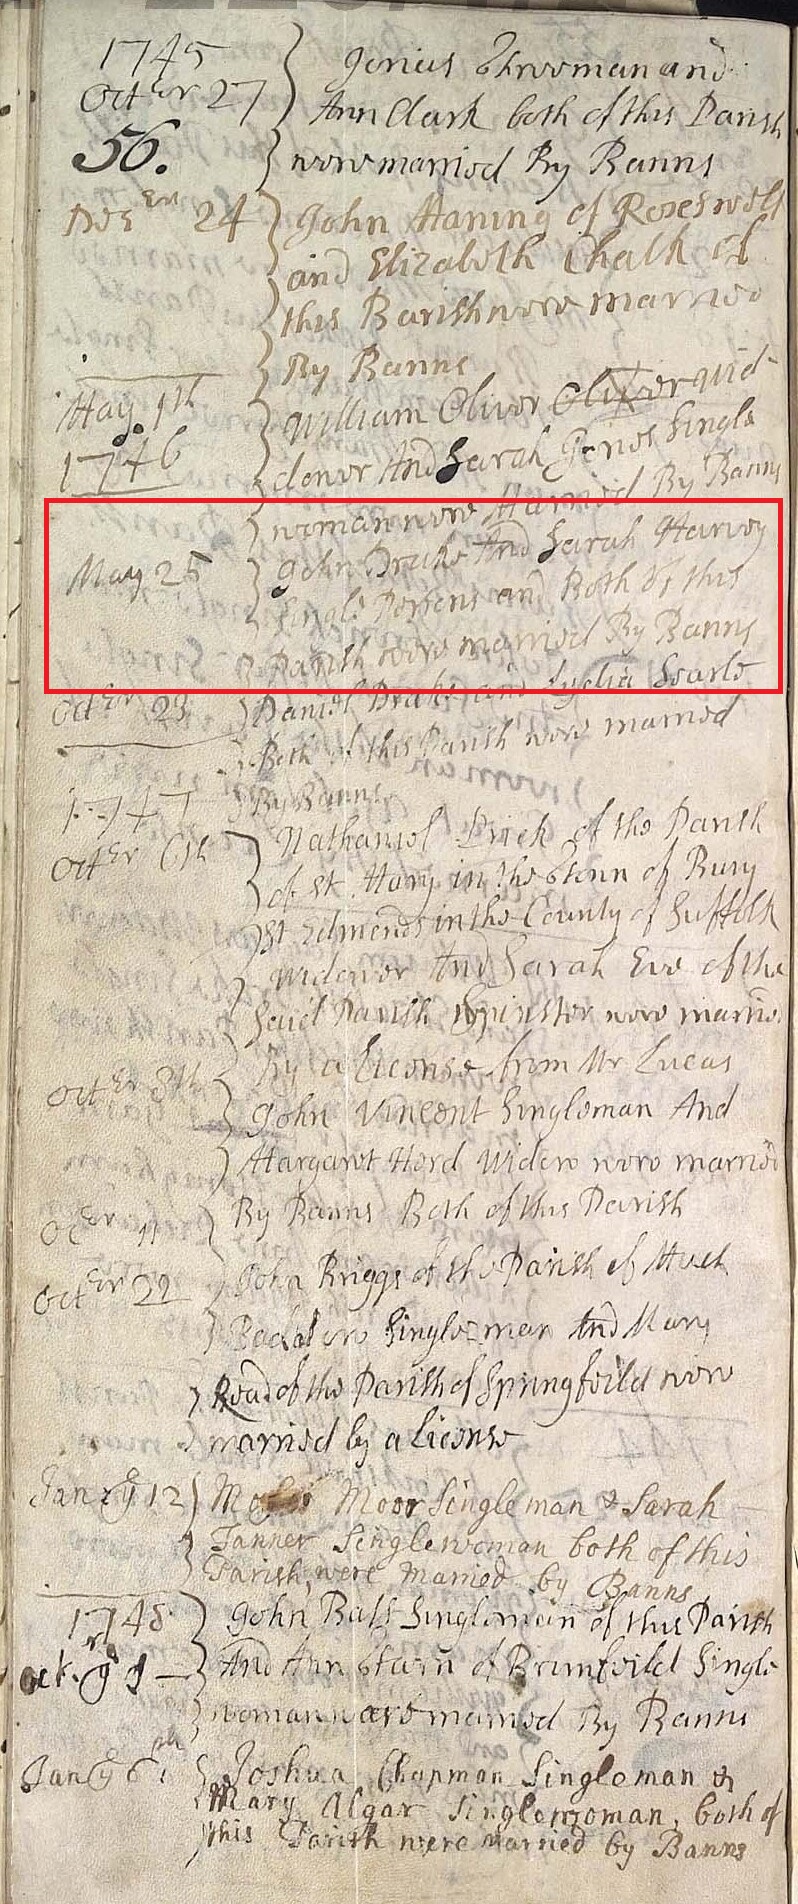 1745
Octer 27
56.
Jonius Throoman and
Ann Clark both of this Parish
wore married By Banns
Deser 24
John Haning of Roxeswell
and Elizabeth Chalk of
this Barish wore married
By Banns
May 1th
1746
William Olivor Olivor wid-
dowor And Sarah Jonos Singls
woman wore Married By Banns
May 25
John Drake And Sarah Harvey
Singls Persens and Both of this
Parish wore married By Banns
Octer 23
Daniol Drake and Lydia Soarls
Both of this Parish wore married
By Banns
1747
Octer 6th
Nathaniol Prick of the Parish
of St. Mary in the Town of Bury
St Edmends in the County of Suffolk
Widowor And Sarah Eve of the
Said Parish Spinstor wore marrid
By a Liconse from Mr Lucas
Octer 8th
John Vincont Singloman And
Margarot Hord Widow wore married
By Banns Both of this Parish
Octer 11
Octer 22
John Briggs of the Parish of Much
Baddow Singlo man And Mary
Road of the Parish of Springfeild wore
married by a liconso
Janry 12
Moor Singleman & Sarah
Tanner Singlewoman both of this
Parish, were Married by Banns
1748
Oct. 9
John Ball Singloman of this Parish
And Ann Starn of Brumfeild Singls
woman ware married By Banns
Jany 6th
Joshua Chapman Singleman &
Mary Algar Singlewoman, both of
this Parish were married by Banns